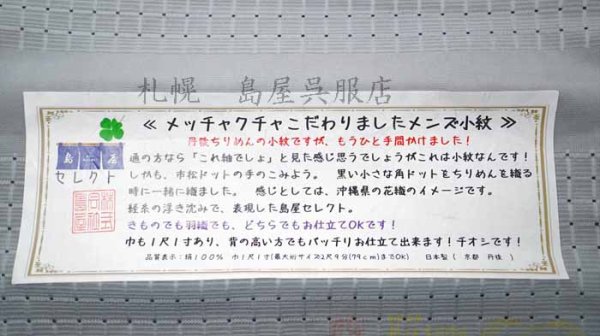 札幌 島屋呉服店
≪ メッチャクチャこだわりましたメンズ小紋 ≫
丹後ちりめんの小紋ですが、もうひと手間かけました!
島屋
セレクト
通の方なら「これ紬でしょ」と見た感じ思うでしょうがこれは小紋なんです!
しかも、市松ドットの手のこみよう。 黒い小さな角ドットをちりめんを織る
時に一緒に織ました。 感じとしては、沖縄県の花織のイメージです。
経糸の浮き沈みで、表現した島屋セレクト。
きものでも羽織でも、どちらでもお仕立てOKです!
巾も1尺1寸あり、背の高い方でもバッチリお仕立て出来ます!チオシです!
品質表示:絹100% 巾1尺1寸(最大裄サイズ2尺9分(79cm)までOK) 日本製( 京都 丹後 )